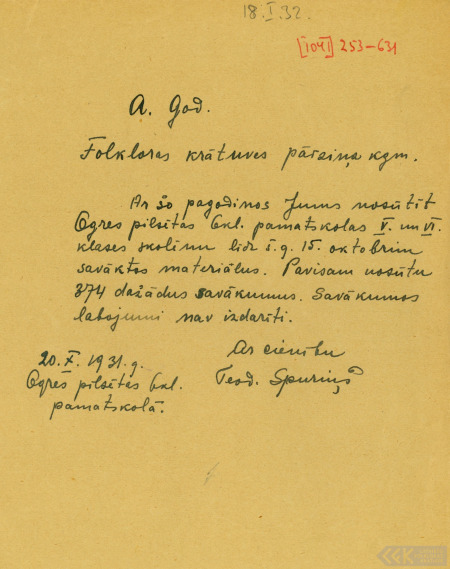 18.I.32.
[1041] 253-631
A. God.
Folkloras krātuves pārziņa kgm.
Ar šo pagodinos Jums nosūtīt
Ogres pilsētas 6kl. pamatskolas V. un VI.
klases skolēnu līdz š.g. 15. oktobrim
savāktos materiālus. Pavisam nosūtu
374 dažādus savākumus. Savākumos
labojumi nav izdarīti.
Ar cieņību
20.X.1931.g.
Teod. Spuriņš
Ogres pilsētas 6kl.
pamatskolā.